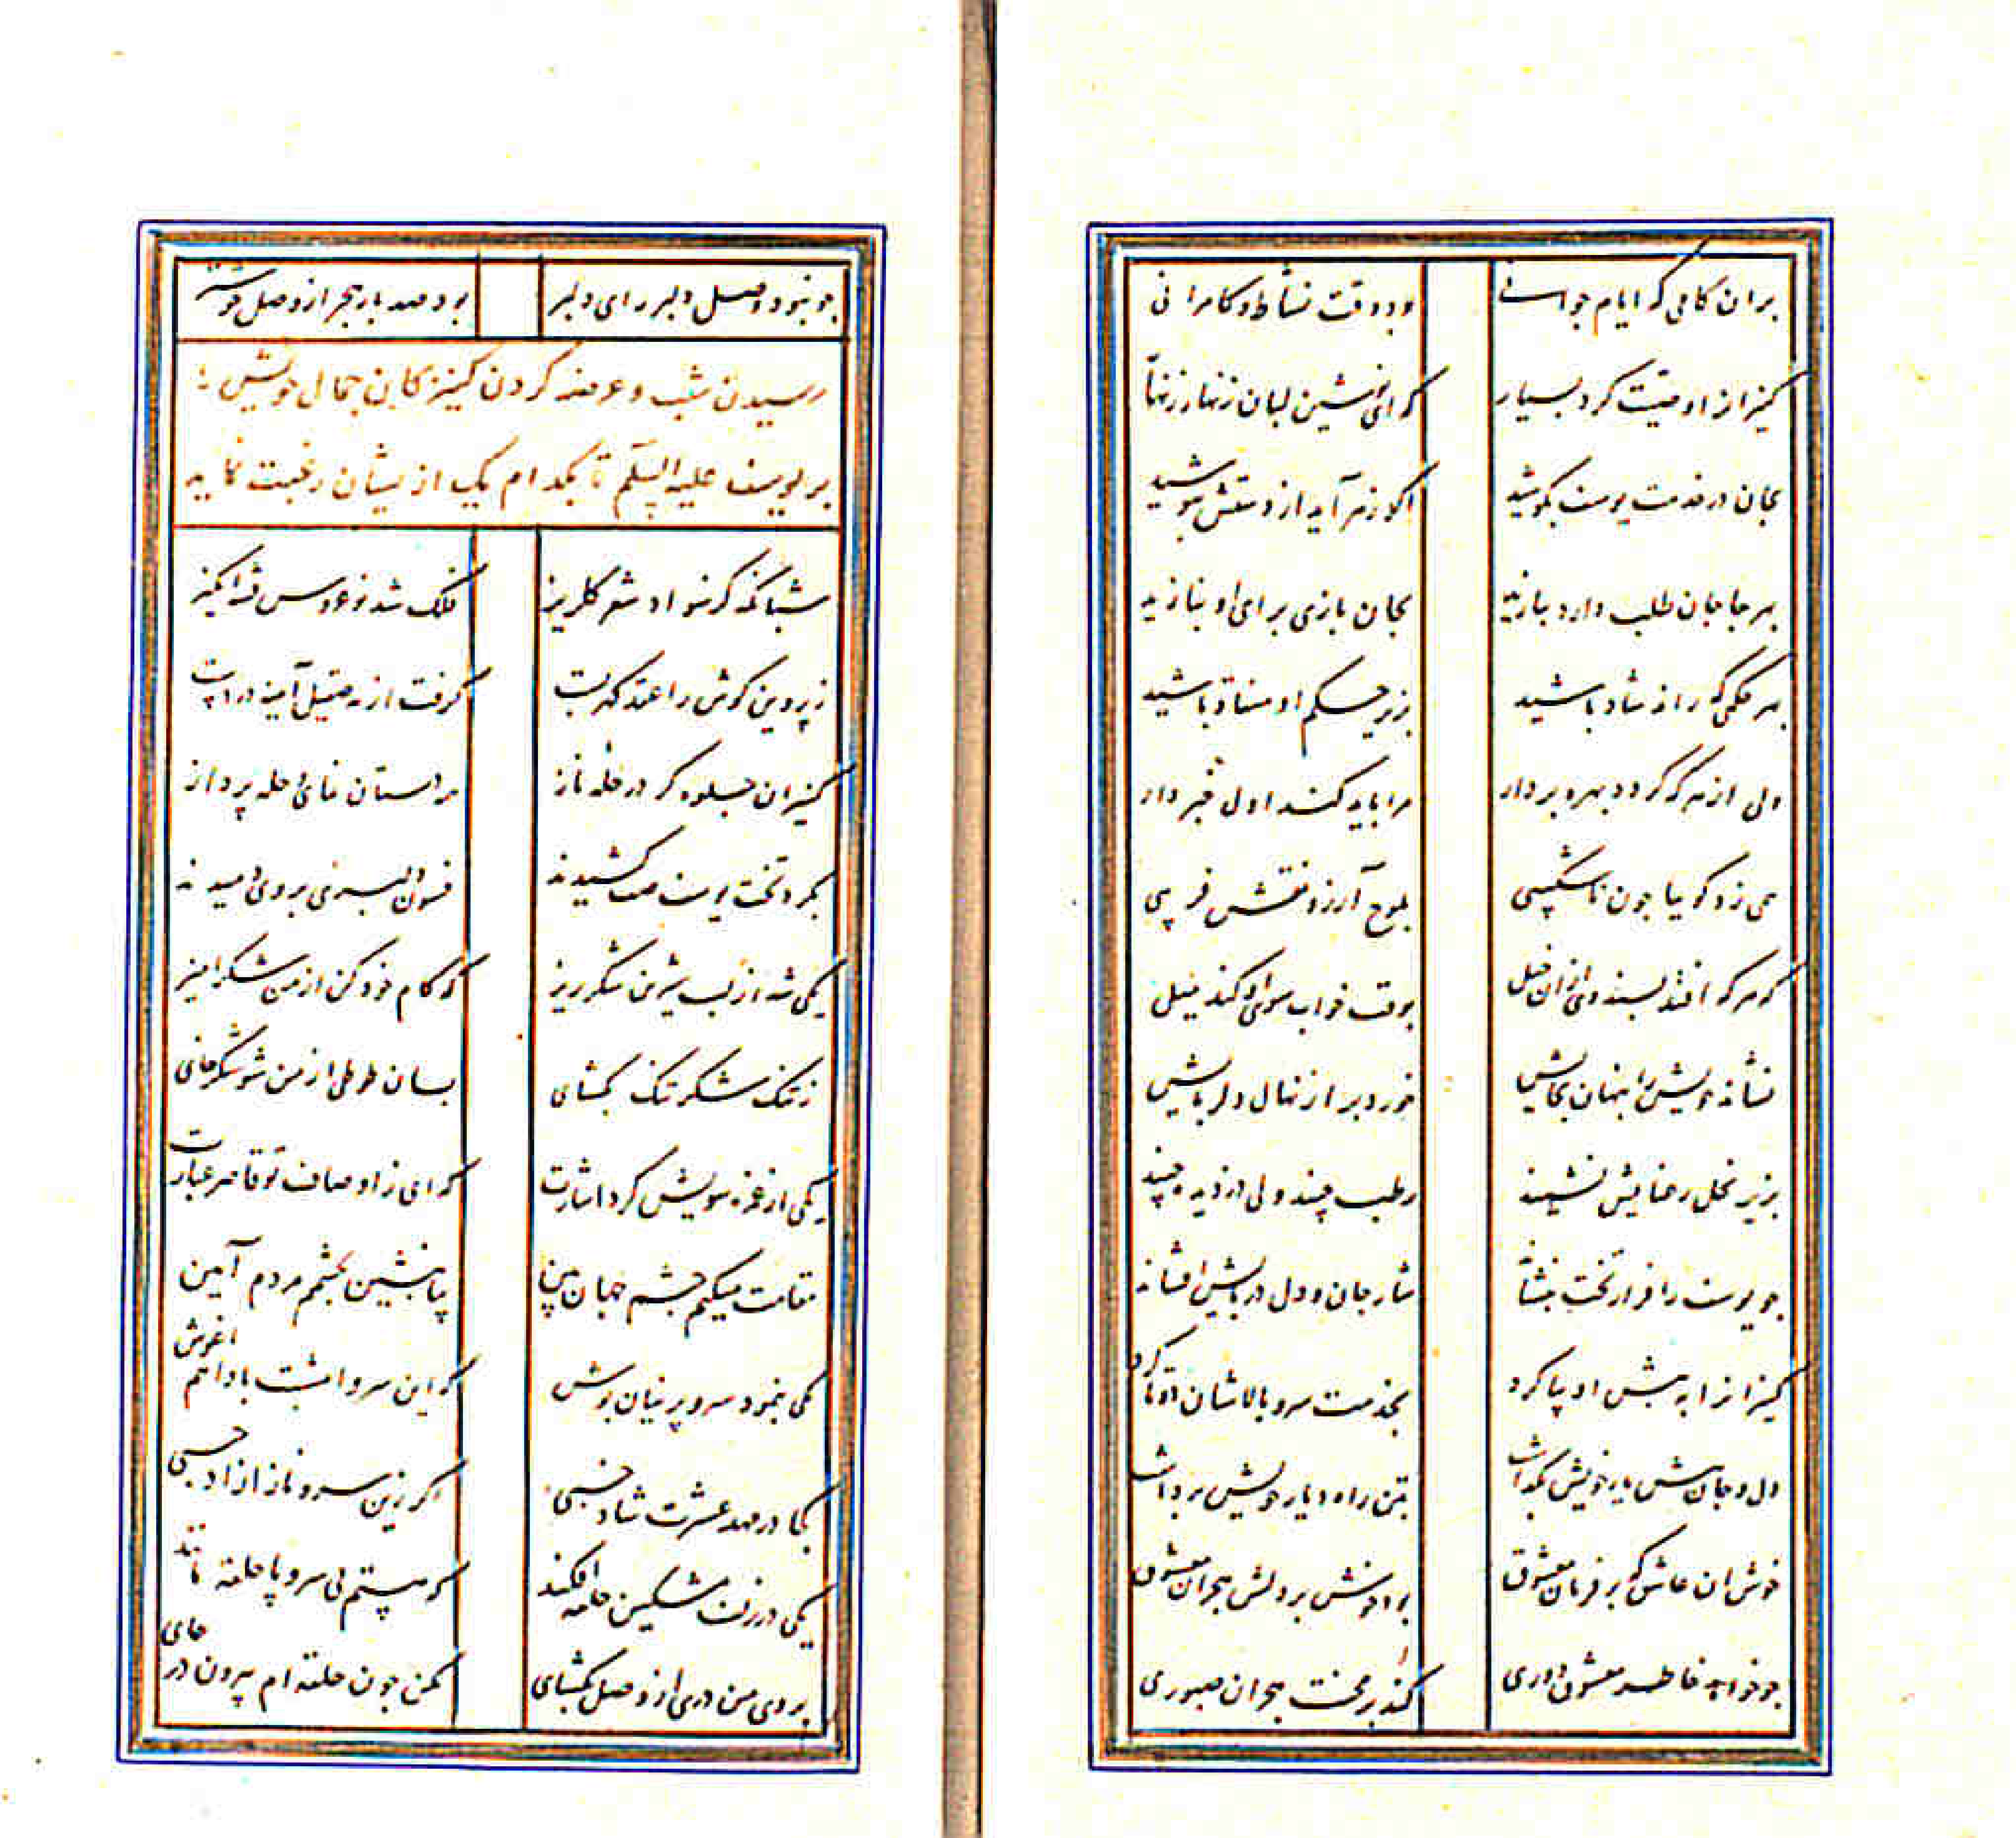 بران کامی که ایام جوانی بود وقت نشاط و کامرانی
کنیزانرا وصیت کرد بسیار که ای نوشین لبان زنهار زنهار
بجان در خدمت یوسف بکوشید اگر زهر آید از دستش بنوشید
بهر جا جان طلب دارد بتازید بجان بازی برای او بنازید
بهر حکمی که راند شاد باشید بزیر حکم او منقاد باشید
ولی از هر که گردد بهره بردار مرا باید کند اول خبردار
همی زد گوییا چون ناشکیبی بلوح آرزو نقش فریبی
که هر که افتد پسند وی ازان خیل بوقت خواب سوی او کند میل
نشاند خویش را پنهان بجایش خورد بر از نهال دلربایش
بزیر نخل رعنایش نشیند رطب چیند ولی دزدیده چیند
چو یوسف را فراز تخت بنشاند نثار جان و دل در پایش افشاند
کنیزانرا به پیش او بپا کرد بخدمت سرو بالاشان دوتا کرد
دل و جان پیش یار خویش بگذاشت بتن راه دیار خویش برداشت
خوش ان عاشق که بر فرمان معشوق بود خوش بر دلش هجران معشوق
چو خواهد خاطر معشوق دوری کند بر محنت هجران صبوری
چو نبود وصل دلبر رای دلبر بود صد بار هجر از وصل خوشتر
رسیدن شب و عرضه کردن کنیزکان جمال خویش را
بر یوسف علیه السلم تا بکدام یک از یشان رغبت نماید
شبانگه کز سواد شعر گلریز فلک شد نو عروس فتنه انگیز
ز پروین گوش را عقد گهر بست گرفت از مه صقیل آیینه در دست
کنیزان جلوه گر در حله ناز ‌دستان نمای حله پرداز
بگرد تخت یوسف صف کشیدند فسون دلبری بر وی دمیدند
یکی شد از لب شیرین شکرریز که کام خود کن از من شکرامیز
ز تنگ شکر تنگ بگشای بسان طوطی از من شو شکرخای
یکی از غمزه سویش کرد اشارت که ای ز اوصاف تو قاصر عبارت
مقامت میکنم چشم جهان بین بیا بنشین بچشم مردم آیین
یکی بنمود سرو پرنیان پوش که این سرو امشبت بادا هم اغوش
کجا در مهد عشرت شاد خسبی اگر زین سرو ناز ازاد خسبی
یکی در زلف مشکین حلقه افکند که هستم بی سر و پا حلقه مانند
بروی من دری از وصل بگشای مکن چون حلقه ام بیرون در جای